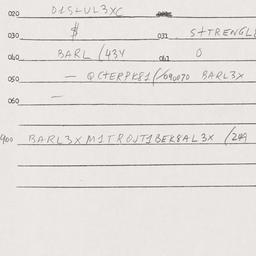 020 D1SLUL3XC
030 $ 031 STRENGL8
040 BARL (434 041 O
050 — QCTERPK81(/690070 BARL3X
060 —
400 BARL3X M1TROJT1BEK8AL3X /249